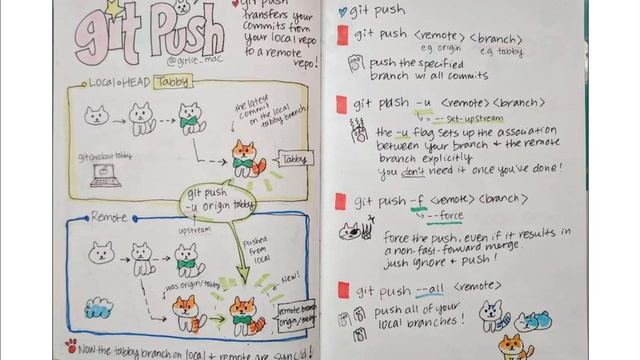 git Push
@girlie_mac
git push
transfers your
commits from
your local repo
to a remote
repo!
Local HEAD Tabby
the latest
commit
on the local
tabby branch
git checkout tabby
Tabby
git push
-u origin tabby
upstream
Remote
pushed
from
local
was origin/tabby
New!
remote branch
origin/tabby
Now the tabby branch on local & remote are sync'd!
git push
git push <remote> <branch>
e.g. origin e.g. tabby
push the specified
branch w/ all commits
git push -u <remote> <branch>
= --set-upstream
the -u flag sets up the association
between your branch & the remote
branch explicitly
you don't need it once you've done!
git push -f <remote> <branch>
--force
Force the push, even if it results in
a non-fast-forward merge.
Just ignore & push!
git push --all <remote>
push all of your
local branches!